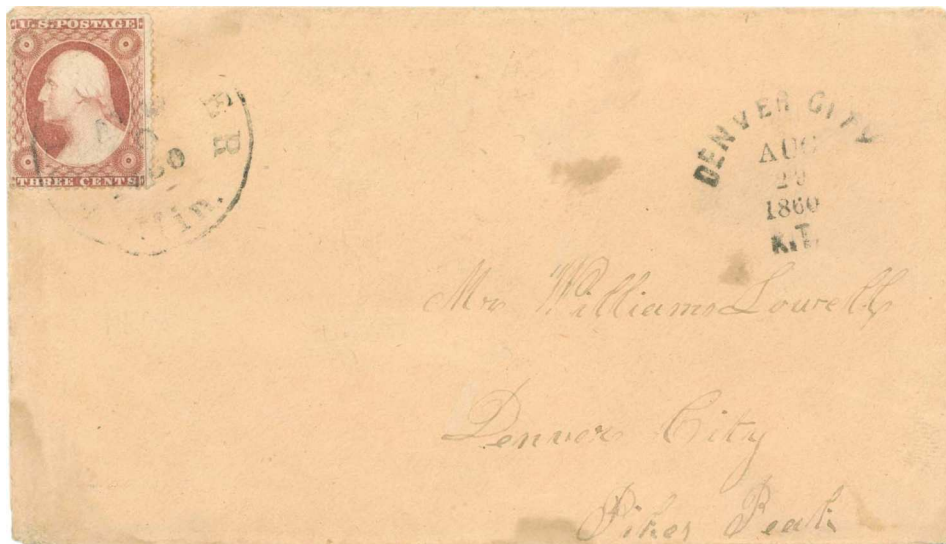 U.S. POSTAGE
THREE CENTS
60
Min.
DENVER CITY
AUG
29
1860
K.T.
Mr William Lowell
Denver City
Pikes Peak